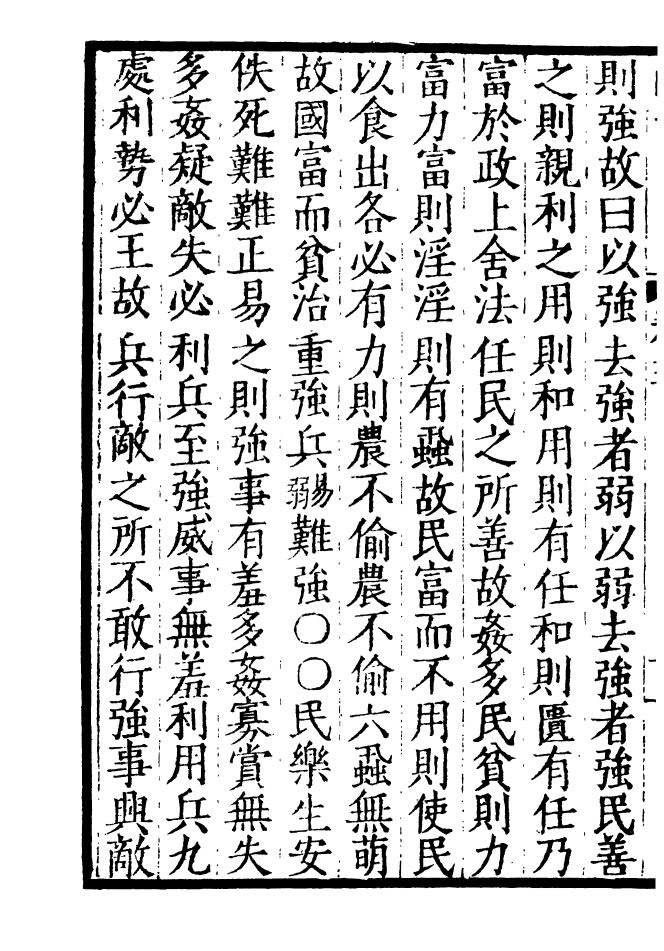 則強故曰以強去強者弱以弱去強者強民善
之則親利之用則和用則有任和則匱有任乃
富於政上舍法任民之所善故姦多民貧則力
富力富則淫淫則有蝨故民富而不用則使民
以食出各必有力則農不偷農不偷六蝨無萌
故國富而貧治重強兵易弱難強〇〇民樂生安
佚死難難正易之則強事有羞多姦寡賞無失
多姦疑敵失必利兵至強威事無羞利用兵九
處利勢必王故兵行敵之所不敢行強事興敵